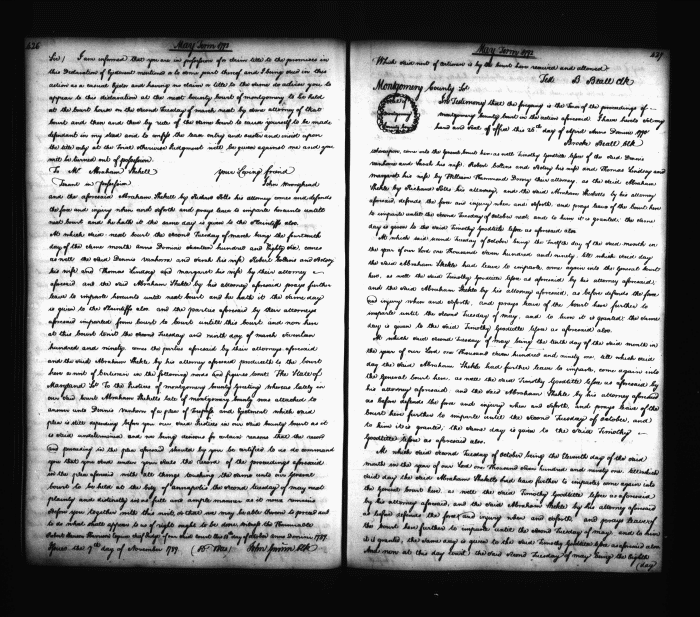 426
May Term 1792
Sir, I am informed that you are in possession of or claim title to the premises in
this Declaration of Ejectment mentioned or to some part thereof and I being sued in this
action as a casual Ejector and having no claim or title to the same do advise you to
appear to this declaration at the next County Court of Montgomery to be held
at the Court house on the second Tuesday of March next by some attorney of that
Court and then and there by rule of the same Court to cause yourself to be made
defendant in my stead and to confess the lease entry and ouster and insist upon
the title only at the Trial otherwise Judgment will be given against me and you
will be turned out of possession
To Mr. Abraham your loving friend
Tenant in possession John
and the aforesaid Abraham by Richard his attorney comes and defends
the force and injury when and so forth and prays leave to imparle hereunto untill
next Court and he hath it the same day is given to the Plaintiffs also
At which said next Court the second Tuesday of March being the fourteenth
day of the same month anno Domini seventeen hundred and Eighty six, comes
as well the said Dennis and Sarah his wife Robert and Ketsey
his wife and Thomas Lindsay and Margaret his wife by their attorney
aforesaid and the said Abraham by his attorney aforesaid prays further
leave to imparle hereunto untill next Court and he hath it the same day
is given to the Plaintiffs also and the parties aforesaid by their attorneys
aforesaid imparled from Court to Court untill this Court and now here
at this Court to wit the second Tuesday and ninth day of March seventeen
hundred and ninety come the parties aforesaid by their attorneys aforesaid
and the said Abraham by his attorney aforesaid produceth to the Court
here a writ of Certiorari in the following words and figures to wit The State of
Maryland Sct To the Justices of Montgomery County Greeting whereas lately in
our said Court Abraham late of Montgomery County was attached to
answer unto Dennis of a plea of Trespass and Ejectment which said
plea is still depending before you our said Justices in our said County Court as it
is said undetermined and we being desirous for certain reasons that the record
and process in the plea aforesaid should by you be certified to us do command
you that you send under your seals the record of the proceedings aforesaid
in the plea aforesaid with all things touching the same unto our General
Court to be held at the City of Annapolis the second Tuesday of May next
plainly and distinctly in as full and ample manner as it now remains
before you together with this writ so that we may be able thereon to proceed and
to do what shall appear to us of right ought to be done witness the Honourable
Judge of our said Court the day of October anno Domini 1789
Issued the 9th day of November 1789
427
May Term 1792
Which said writ of Certiorari is by the Court here received and allowed
Test B Beall Clk
Montgomery County Sct
In Testimony that the foregoing is the Tenor of the proceedings of
Montgomery County Court in the action aforesaid I have hereto set my
hand and Seal of office this 26th day of April Anno Domini 1790
Brooke Beall Clk
Whereupon, come into the General Court here as well Timothy lessee of the said Dennis
and Sarah his wife, Robert and Ketsey his wife and Thomas Lindsay and
Margaret his wife by William Hammond Dorsey their attorney, as the said Abraham
by Richard his attorney, and the said Abraham by his attorney
aforesaid, defends the force and injury when and so forth, and prays leave of the Court here
to imparle until the second Tuesday of October next, and to him it is granted, the same
day is given to the said Timothy lessee as aforesaid also.
At which said second Tuesday of October being the twelfth day of the said month in
the year of our Lord one thousand seven hundred and ninety, till which said day
the said Abraham had leave to imparle, come again into the General Court
here, as well the said Timothy lessee as aforesaid by his attorney aforesaid,
and the said Abraham by his attorney aforesaid, as before defends the force
and injury when and so forth, and prays leave of the Court here further to
imparle until the second Tuesday of May, and to him it is granted; the same
day is given to the said Timothy lessee as aforesaid also.
At which said second Tuesday of May being the tenth day of the said month in
the year of our Lord one thousand seven hundred and ninety one, till which said
day the said Abraham had further leave to imparle, come again into
the General Court here, as well the said Timothy lessee as aforesaid by
his attorney aforesaid: and the said Abraham by his attorney aforesaid
as before defends the force and injury when and so forth, and prays leave of the
Court here further to imparle until the second Tuesday of October, and
to him it is granted, the same day is given to the said Timothy
lessee as aforesaid also.
At which said second Tuesday of October being the eleventh day of the said
month in the year of our Lord one thousand seven hundred and ninety one, till which
said day the said Abraham had further leave to imparle, come again into
the General Court here, as well the said Timothy lessee as aforesaid
by his attorney aforesaid, and the said Abraham by his attorney aforesaid
as before defends the force and injury when and so forth, and prays leave of
the Court here further to imparle until the second Tuesday of May, and to him
it is granted, the same day is given to the said Timothy lessee as aforesaid also
And now at this day to wit, the said second Tuesday of May being the Eighth
(day